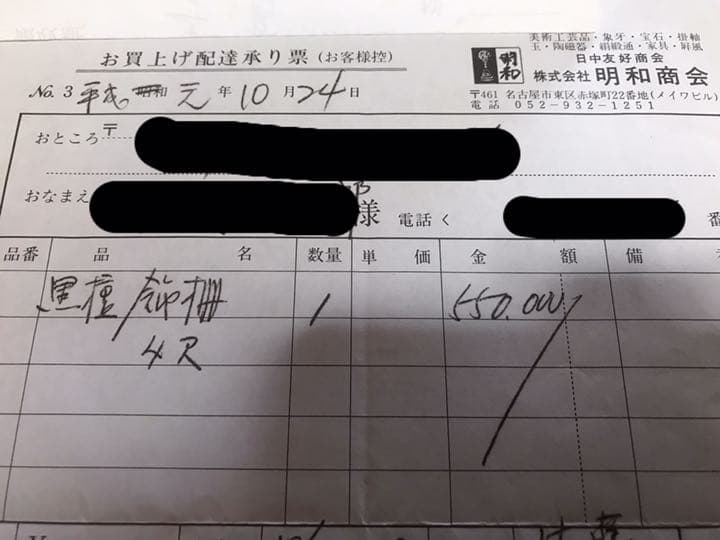 お買上げ配達承り票(お客様控)
美術工芸品・象牙・宝石・掛軸
玉・陶磁器・絹緞通・家具・屏風
明和
日中友好商会
株式会社 明和商会
〒461 名古屋市東区赤塚町22番地(メイワビル)
電話 052-932-1251
No. 3 平成 昭和 元年10月24日
おところ 〒
おなまえ 様 電話く 番
品番 品名 数量 単価 金額 備
黒檀飾棚 1 550.000
4尺